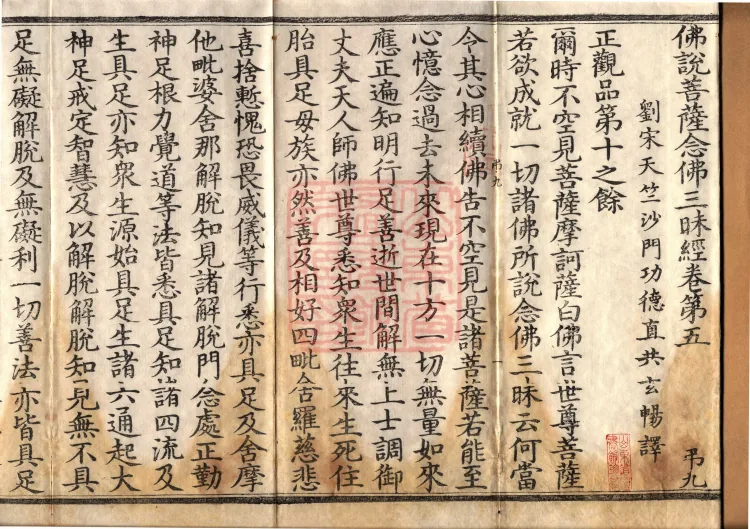 佛說菩薩念佛三昧經卷第五
弔九
劉宋天竺沙門功德直共玄暢譯
正觀品第十之餘
爾時不空見菩薩摩訶薩白佛言世尊菩薩
若欲成就一切諸佛所說念佛三昧云何當
弔九
令其心相續佛告不空見是諸菩薩若能至
心憶念過去未來現在十方一切無量如來
應正遍知明行足善逝世間解無上士調御
丈夫天人師佛世尊悉知衆生往來生死住
胎具足母族亦然善及相好四毗舍羅慈悲
喜捨慙愧恐畏威儀等行悉亦具足及舍摩
他毗婆舍那解脫知見諸解脫門念處正勤
神足根力覺道等法皆悉具足知諸四流及
生具足亦知衆生源始具足生諸六通起大
神足戒定智慧及以解脫解脫知見無不具
足無礙解脫及無礙利一切善法亦皆具足